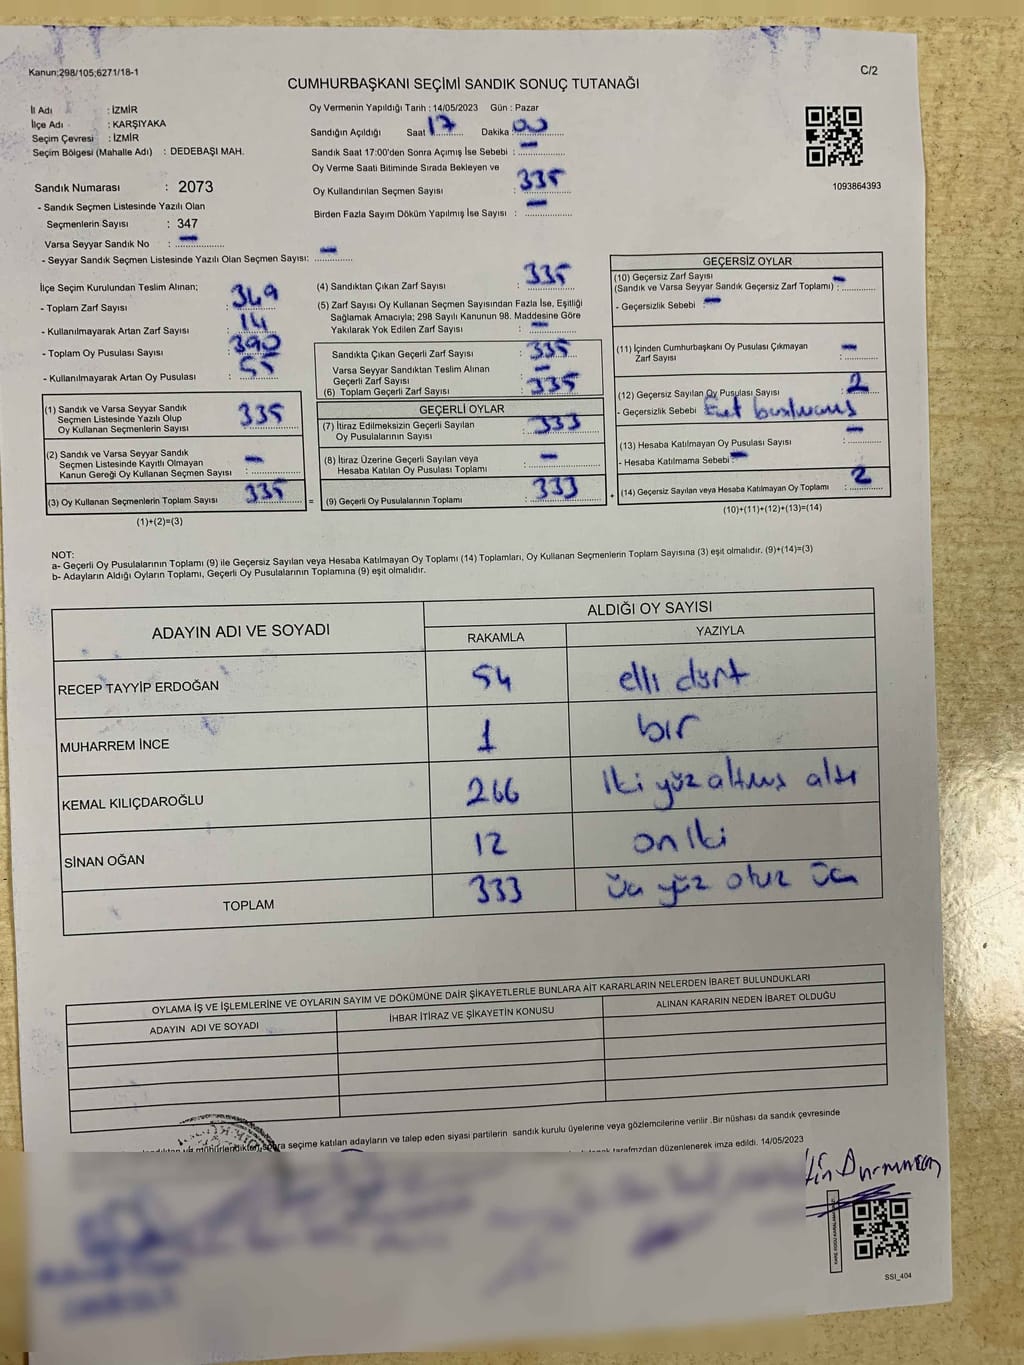 Kanun;298/105;6271/18-1
C/2
CUMHURBAŞKANI SEÇİMİ SANDIK SONUÇ TUTANAĞI
İl Adı : İZMİR
İlçe Adı : KARŞIYAKA
Seçim Çevresi : İZMİR
Seçim Bölgesi (Mahalle Adı) : DEDEBAŞI MAH.
Sandık Numarası : 2073
- Sandık Seçmen Listesinde Yazılı Olan
Seçmenlerin Sayısı : 347
Varsa Seyyar Sandık No : —
- Seyyar Sandık Seçmen Listesinde Yazılı Olan Seçmen Sayısı: —
Oy Vermenin Yapıldığı Tarih : 14/05/2023 Gün : Pazar
Sandığın Açıldığı Saat 17 Dakika 00
Sandık Saat 17:00'den Sonra Açımış İse Sebebi : —
Oy Verme Saati Bitiminde Sırada Bekleyen ve
Oy Kullandırılan Seçmen Sayısı : 335
Birden Fazla Sayım Döküm Yapılmış İse Sayısı : —
1093864393
İlçe Seçim Kurulundan Teslim Alınan;
- Toplam Zarf Sayısı : 349
- Kullanılmayarak Artan Zarf Sayısı : 14
- Toplam Oy Pusulası Sayısı : 390
- Kullanılmayarak Artan Oy Pusulası : 55
(1) Sandık ve Varsa Seyyar Sandık
Seçmen Listesinde Yazılı Olup
Oy Kullanan Seçmenlerin Sayısı : 335
(2) Sandık ve Varsa Seyyar Sandık
Seçmen Listesinde Kayıtlı Olmayan
Kanun Gereği Oy Kullanan Seçmen Sayısı : —
(3) Oy Kullanan Seçmenlerin Toplam Sayısı : 335
(1)+(2)=(3)
(4) Sandıktan Çıkan Zarf Sayısı : 335
(5) Zarf Sayısı Oy Kullanan Seçmen Sayısından Fazla İse, Eşitliği
Sağlamak Amacıyla; 298 Sayılı Kanunun 98. Maddesine Göre
Yakılarak Yok Edilen Zarf Sayısı : —
Sandıkta Çıkan Geçerli Zarf Sayısı : 335
Varsa Seyyar Sandıktan Teslim Alınan
Geçerli Zarf Sayısı : —
(6) Toplam Geçerli Zarf Sayısı : 335
GEÇERLİ OYLAR
(7) İtiraz Edilmeksizin Geçerli Sayılan
Oy Pusulalarının Sayısı : 333
(8) İtiraz Üzerine Geçerli Sayılan veya
Hesaba Katılan Oy Pusulası Toplamı : —
= (9) Geçerli Oy Pusulalarının Toplamı : 333
GEÇERSİZ OYLAR
(10) Geçersiz Zarf Sayısı
(Sandık ve Varsa Seyyar Sandık Geçersiz Zarf Toplamı) : —
- Geçersizlik Sebebi : —
(11) İçinden Cumhurbaşkanı Oy Pusulası Çıkmayan
Zarf Sayısı : —
(12) Geçersiz Sayılan Oy Pusulası Sayısı : 2
- Geçersizlik Sebebi :
(13) Hesaba Katılmayan Oy Pusulası Sayısı : —
- Hesaba Katılmama Sebebi : —
+ (14) Geçersiz Sayılan veya Hesaba Katılmayan Oy Toplamı : 2
(10)+(11)+(12)+(13)=(14)
NOT:
a- Geçerli Oy Pusulalarının Toplamı (9) ile Geçersiz Sayılan veya Hesaba Katılmayan Oy Toplamı (14) Toplamları, Oy Kullanan Seçmenlerin Toplam Sayısına (3) eşit olmalıdır. (9)+(14)=(3)
b- Adayların Aldığı Oyların Toplamı, Geçerli Oy Pusulalarının Toplamına (9) eşit olmalıdır.
ADAYIN ADI VE SOYADI ALDIĞI OY SAYISI
RAKAMLA YAZIYLA
RECEP TAYYİP ERDOĞAN 54 elli dört
MUHARREM İNCE 1 bir
KEMAL KILIÇDAROĞLU 266 İki yüz altmış altı
SİNAN OĞAN 12 on İki
TOPLAM 333 üç yüz otuz üç
OYLAMA İŞ VE İŞLEMLERİNE VE OYLARIN SAYIM VE DÖKÜMÜNE DAİR ŞİKAYETLERLE BUNLARA AİT KARARLARIN NELERDEN İBARET BULUNDUKLARI
ADAYIN ADI VE SOYADI İHBAR İTİRAZ VE ŞİKAYETİN KONUSU ALINAN KARARIN NEDEN İBARET OLDUĞU
seçime katılan adayların ve talep eden siyasi partilerin sandık kurulu üyelerine veya gözlemcilerine verilir .Bir nüshası da sandık çevresinde
mühürlendikten tarafmzdan düzenlenerek imza edildi. 14/05/2023
SSI_404